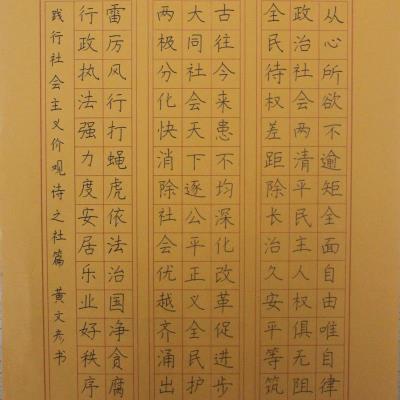 从心所欲不逾矩全面自由唯自律
政治社会两清平民主人权俱无阻
全民待权差距除长治久安平等筑
古往今来患不均深化改革促进步
大同社会天下逐公平正义全民护
两极分化快消除社会优越齐涌出
雷厉风行打蝇虎依法治国净贪腐
行政执法强力度安居乐业好秩序
践行社会主义价观诗之社篇 黄文彦书